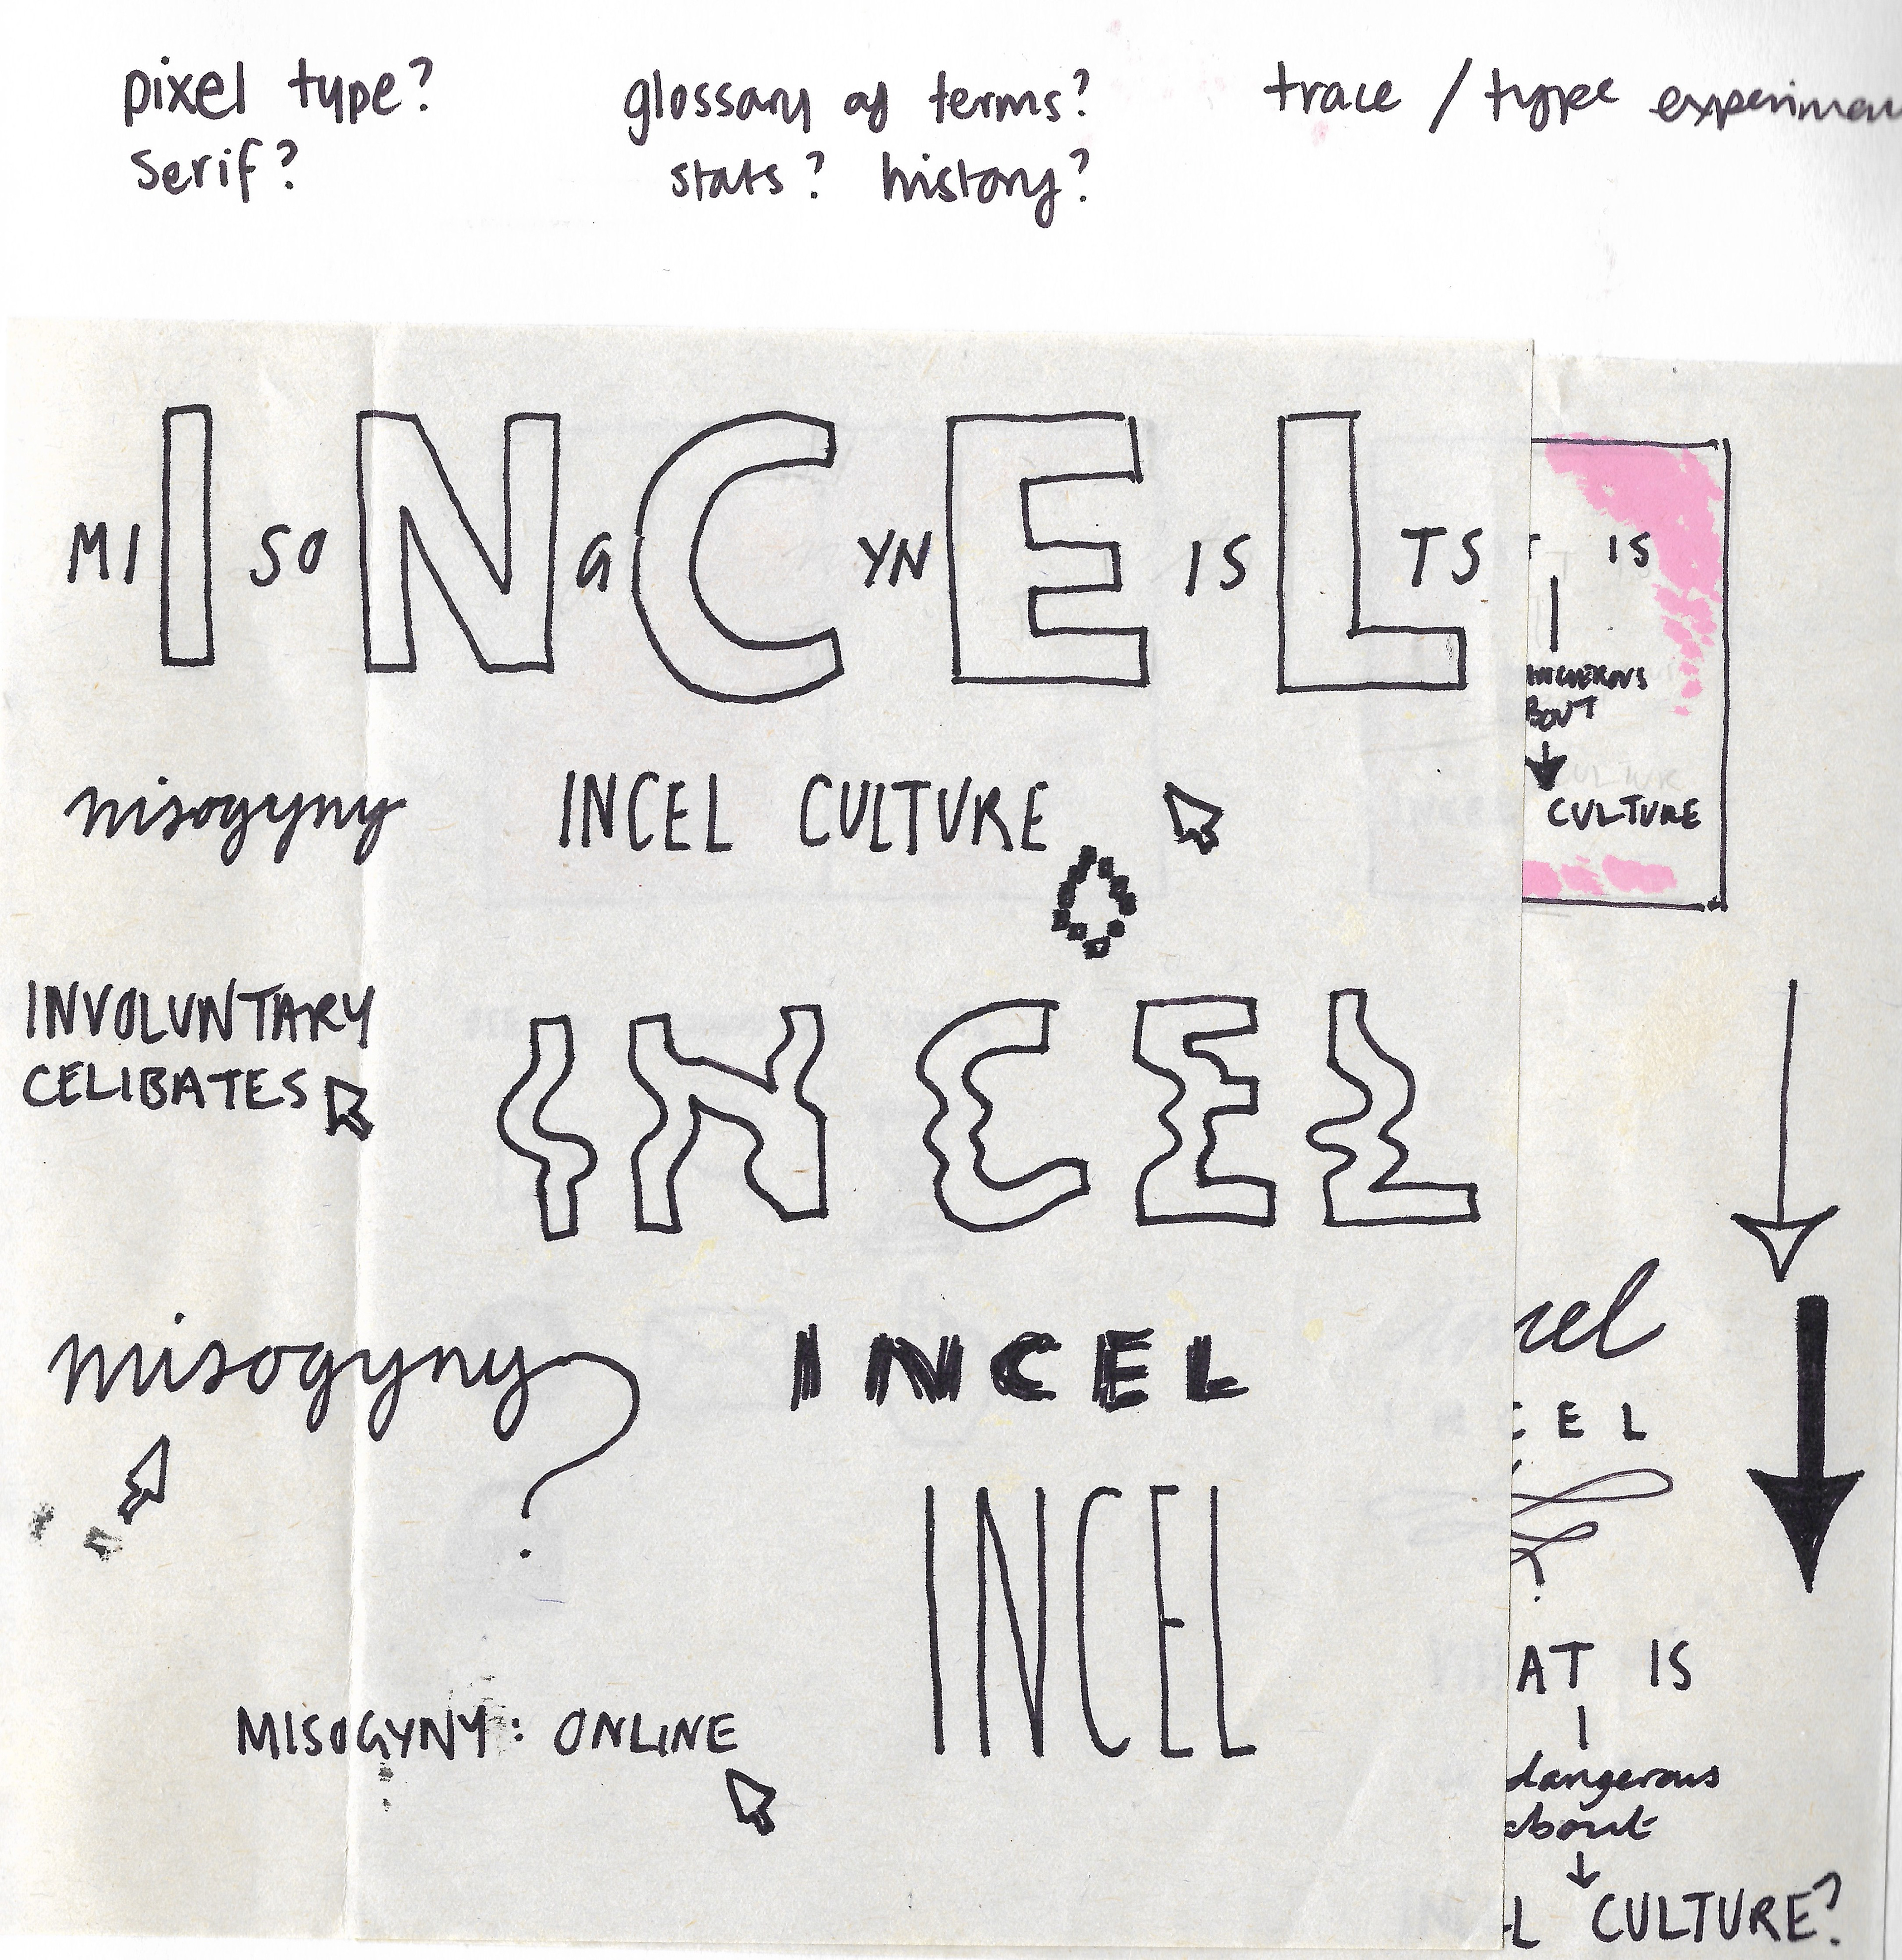 pixel type?
serif?
glossary of terms?
stats? history?
trace / type experimen
MI I SO N G C YN E IS L TS
T IS
ANGEROUS
BOUT
CULTURE
misogyny
INCEL CULTURE
INVOLUNTARY
CELIBATES
INCEL
misogyny?
INCEL
cel
CEL
INCEL
MISOGYNY: ONLINE
AT IS
dangerous
about
L CULTURE?